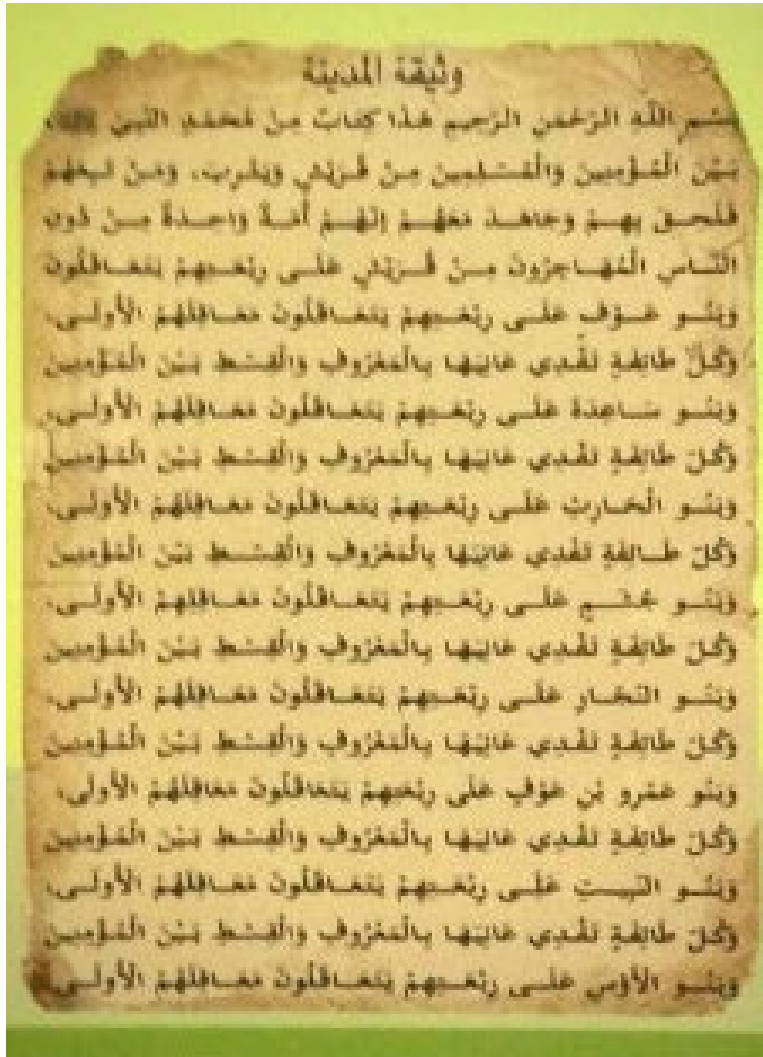 وثيقة المدينة
بسم اللهِ الرَّحْمَنِ الرَّحِيمِ هَذَا كِتَابٌ مِنْ مُحَمَّدٍ النَّبِيّ ﷺ،
بَيْنَ الْمُؤْمِنِينَ وَالْمُسْلِمِينَ مِنْ قُرَيْشٍ وَيَثْرِبَ، وَمَنْ تَبِعَهُمْ
فَلَحِقَ بِهِمْ وَجَاهَدَ مَعَهُمْ إِنَّهُمْ أُمَّةٌ وَاحِدَةٌ مِنْ دُونِ
النَّاسِ الْمُهَاجِرُونَ مِنْ قُرَيْشٍ عَلَى رِبْعَتِهِمْ يَتَعَاقَلُونَ
وَبَنُو عَوْفٍ عَلَى رِبْعَتِهِمْ يَتَعَاقَلُونَ مَعَاقِلَهُمْ الْأُولَى،
وَكُلُّ طَائِفَةٍ تَفْدِي عَانِيَهَا بِالْمَعْرُوفِ وَالْقِسْطِ بَيْنَ الْمُؤْمِنِينَ
وَبَنُو سَاعِدَةَ عَلَى رِبْعَتِهِمْ يَتَعَاقَلُونَ مَعَاقِلَهُمْ الْأُولَى،
وَكُلّ طَائِفَةٍ تَفْدِي عَانِيَهَا بِالْمَعْرُوفِ وَالْقِسْطِ بَيْنَ الْمُؤْمِنِينَ
وَبَنُو الْحَارِثِ عَلَى رِبْعَتِهِمْ يَتَعَاقَلُونَ مَعَاقِلَهُمْ الْأُولَى،
وَكُلّ طَائِفَةٍ تَفْدِي عَانِيَهَا بِالْمَعْرُوفِ وَالْقِسْطِ بَيْنَ الْمُؤْمِنِينَ
وَبَنُو جُشَمٍ عَلَى رِبْعَتِهِمْ يَتَعَاقَلُونَ مَعَاقِلِهِمْ الْأُولَى،
وَكُلّ طَائِفَةٍ تَفْدِي عَانِيَهَا بِالْمَعْرُوفِ وَالْقِسْطِ بَيْنَ الْمُؤْمِنِينَ
وَبَنُو النّجّارِ عَلَى رِبْعَتِهِمْ يَتَعَاقَلُونَ مَعَاقِلَهُمْ الْأُولَى،
وَكُلّ طَائِفَةٍ تَفْدِي عَانِيَهَا بِالْمَعْرُوفِ وَالْقِسْطِ بَيْنَ الْمُؤْمِنِينَ
وَبَنُو عَمْرِو بْنِ عَوْفٍ عَلَى رِبْعَتِهِمْ يَتَعَاقَلُونَ مَعَاقِلَهُمْ الْأُولَى،
وَكُلّ طَائِفَةٍ تَفْدِي عَانِيَهَا بِالْمَعْرُوفِ وَالْقِسْطِ بَيْنَ الْمُؤْمِنِينَ
وَبَنُو النّبِيتِ عَلَى رِبْعَتِهِمْ يَتَعَاقَلُونَ مَعَاقِلَهُمْ الْأُولَى،
وَكُلّ طَائِفَةٍ تَفْدِي عَانِيَهَا بِالْمَعْرُوفِ وَالْقِسْطِ بَيْنَ الْمُؤْمِنِينَ
وَبَنُو الْأَوْسِ عَلَى رِبْعَتِهِمْ يَتَعَاقَلُونَ مَعَاقِلَهُمْ الْأُولَى،